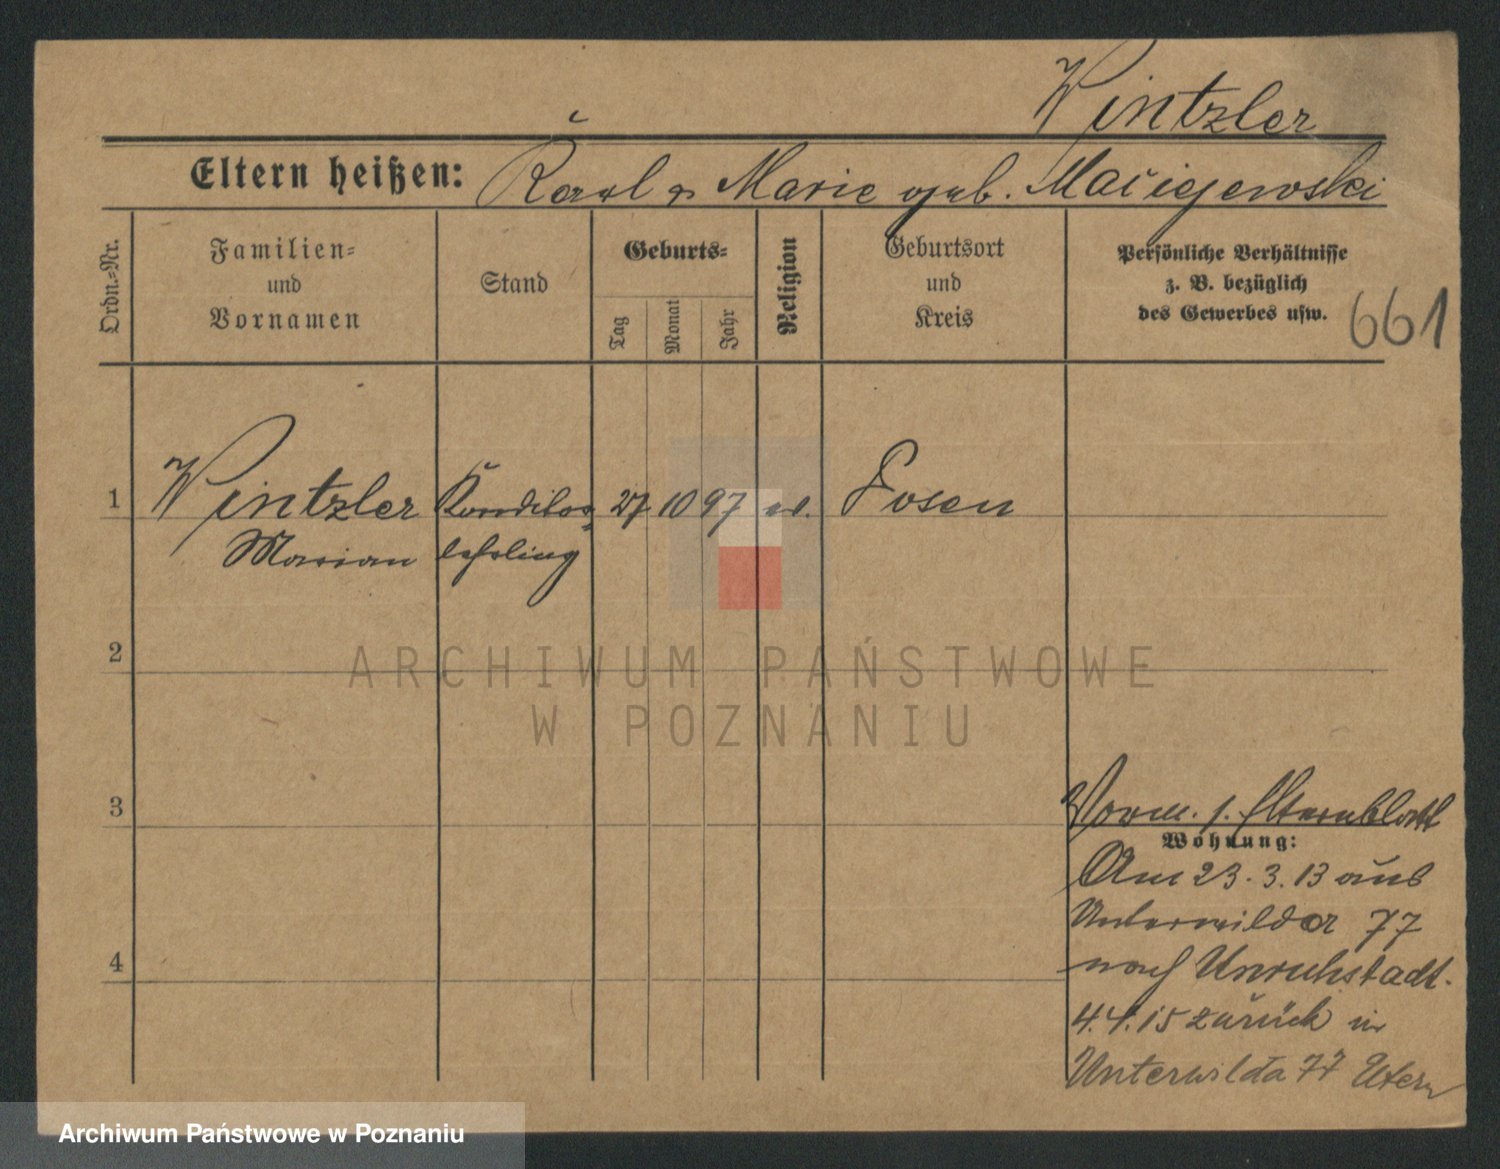 Wintzler
Eltern heißen: Karl u Marie geb. Maciejewski
Ordn.=Nr.
Familien=
und
Vornamen
Stand
Geburts=
Tag
Monat
Jahr
Religion
Geburtsort
und
Kreis
Persönliche Verhältnisse
z. B. bezüglich
des Gewerbes usw.
661
1 Wintzler Konditor 27 10 97 Posen
Marian lehrling
2
ARCHIWUM PAŃSTWOWE
W POZNANIU
3
Vorm. s. Elternblatt
Wohnung:
Am 23.3.13 aus
Unterwilda 77
4
nach Unruhstadt.
4.4.15 zurück in
Unterwilda 77 Eltern
Archiwum Państwowe w Poznaniu